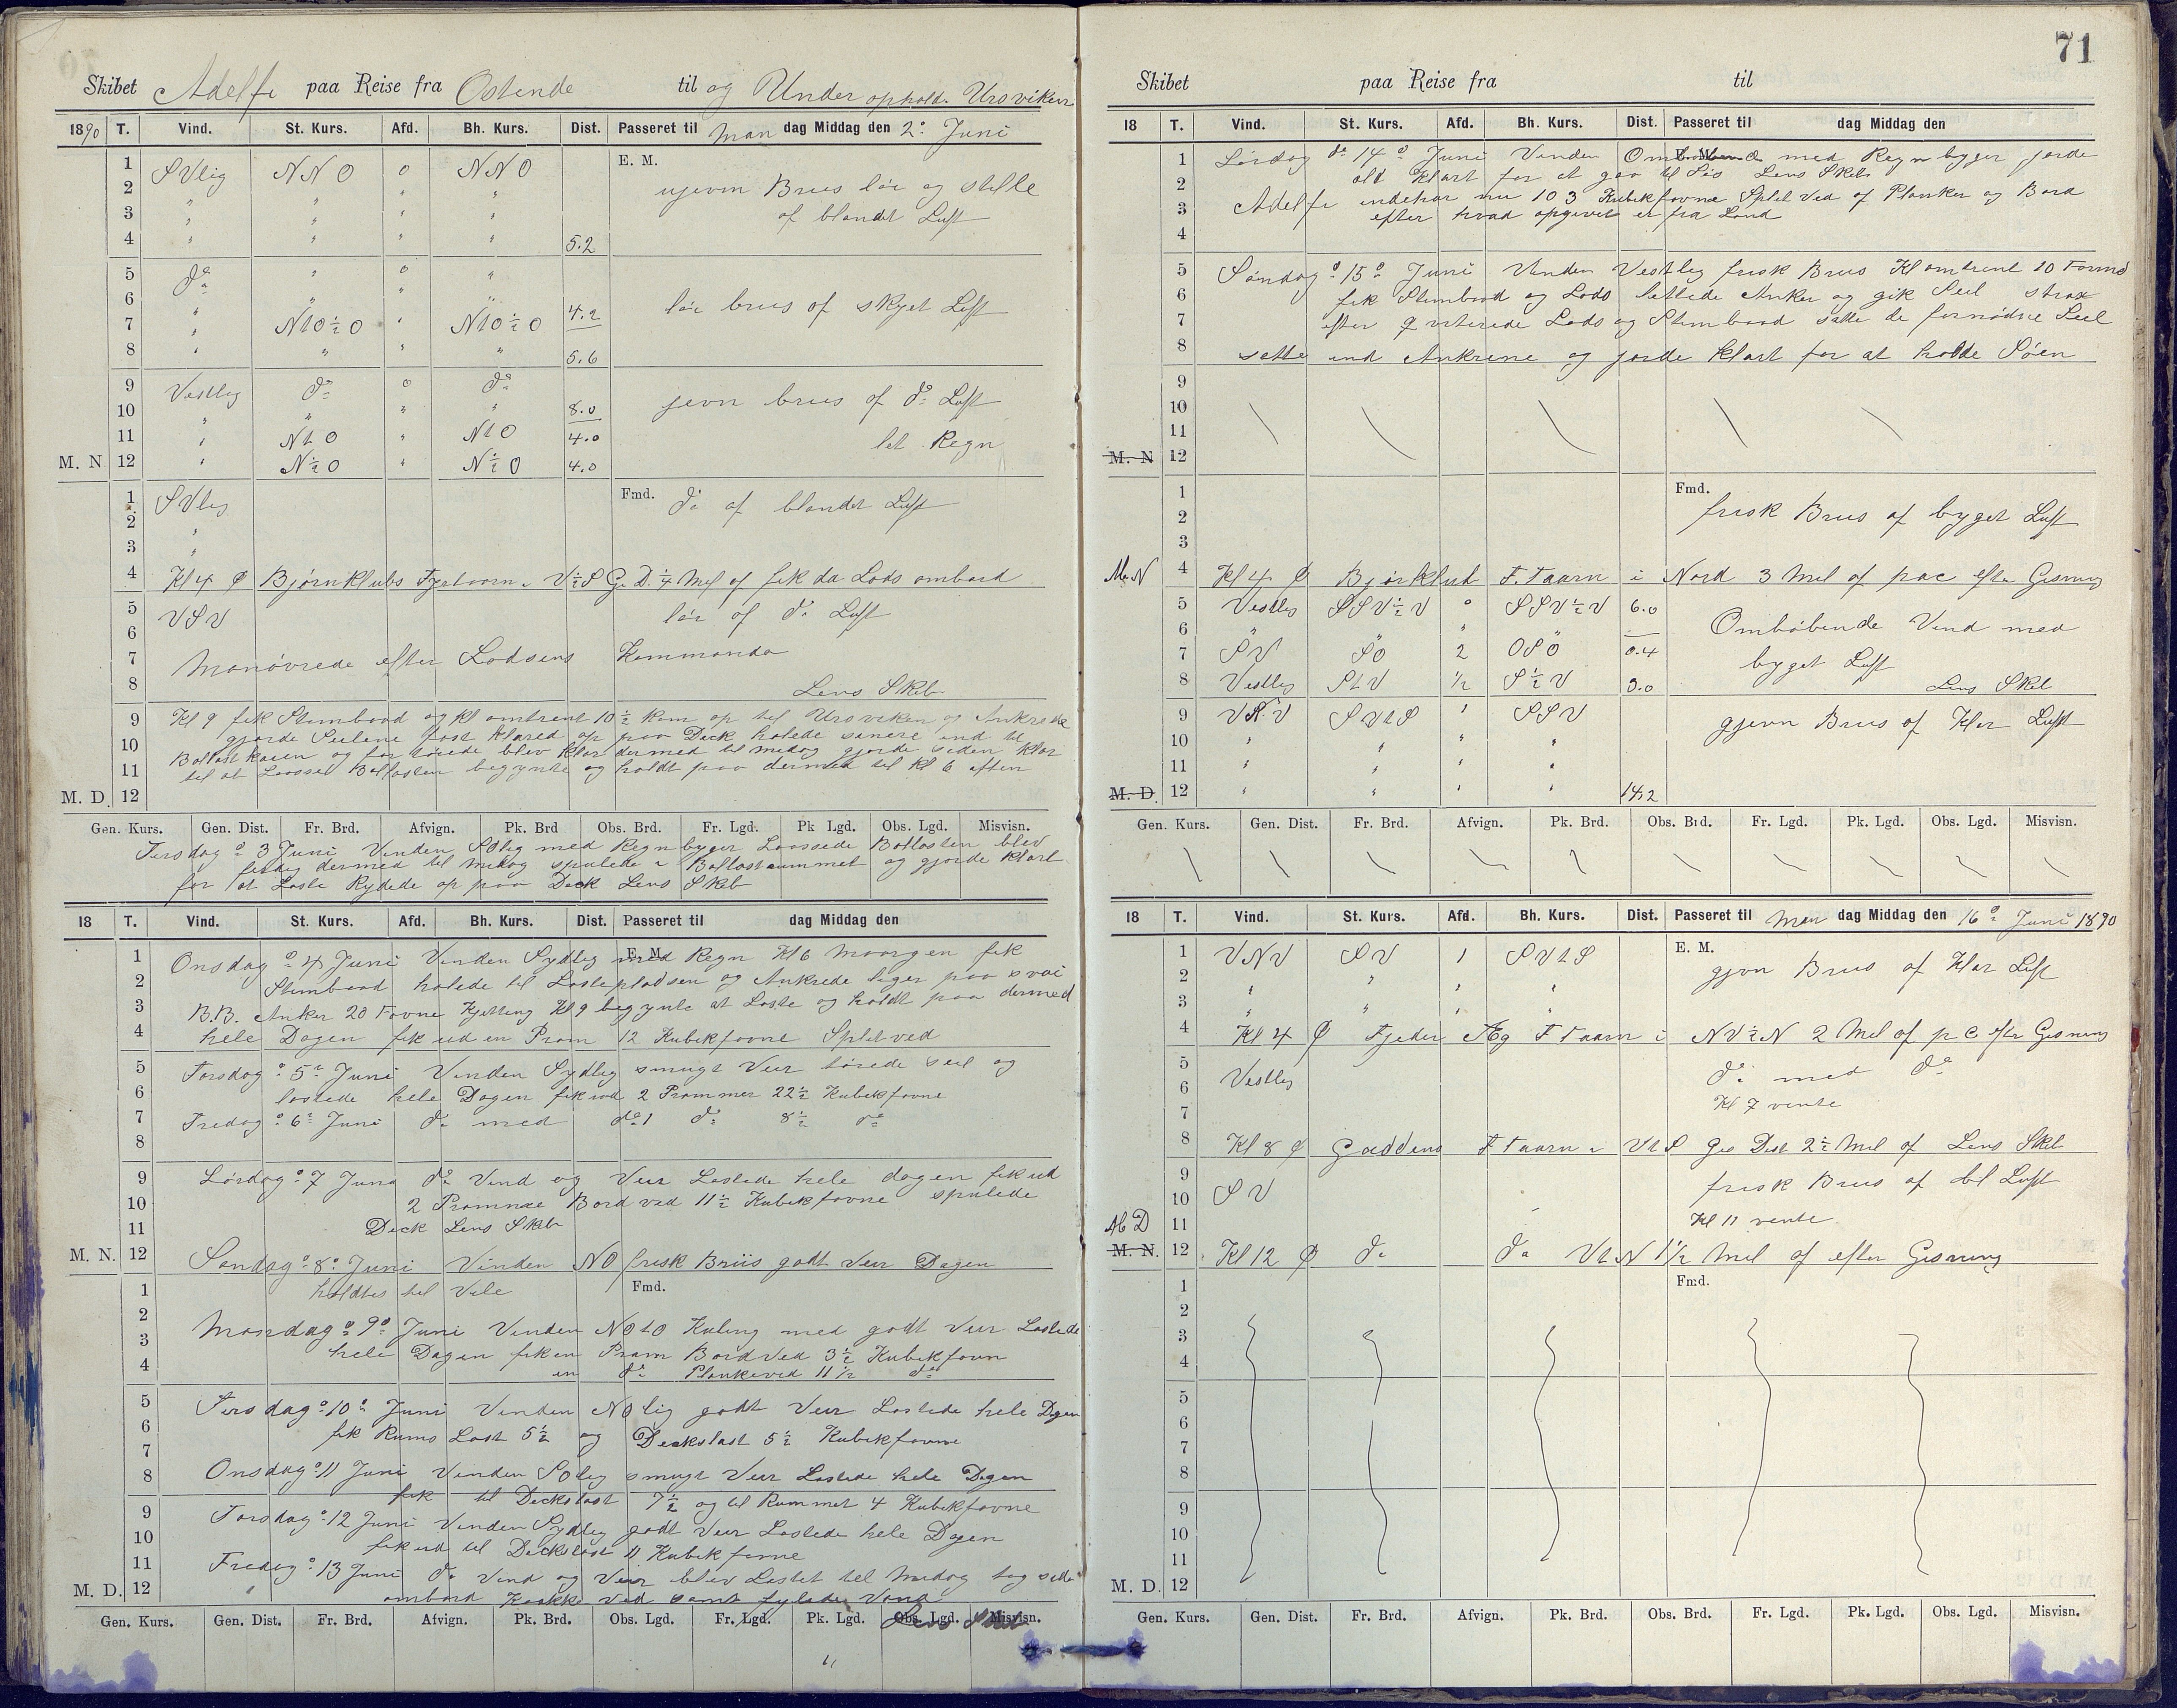 Skibet Adelfi paa Reise fra Ostende til og Under ophold. Ursviken
1890 T. Vind. St. Kurs. Afd. Bh. Kurs. Dist. Passeret til Man dag Middag den 2º Juni
E. M.
1 SVlig NNO 0 NNO
ujevn Briis lør og stille
2 " " " "
3 " " " "
af blandt Luft
4 " " " " 5.2
5 dº " 0 "
6 " " " " 4.2
lør brus af skyet Luft
7 " NtO½O " NtO½O
8 " " " " 5.6
9 Vestlig dº 0 dº
jevn brus af dº Luft
10 " " " " 8.0
11 " NtO " NtO 4.0
let Regn
M. N 12 " N½O " N½O 4.0
1 SVlig
Fmd. dº af blandet Luft
2 "
3 "
4 Kl 4 Ø Bjørnklubs Fyrtaarn i V½S Gs. D. ¼ Mil af fik da Lods ombord
5 VSV
lør af dº Luft
6
7 Manøvrede efter Lodsens Kommando
8 Lens Skib
9 Kl 9 fik Stimbaad og kl omtrent 10½ kom op til Ursviken og Ankrede
gjorde Seilene fast klared op paa Deck halede senere ind til
10 Ballastkaien og fortøiede blev klar dermed til midag gjorde siden klar
11 til at Laasse Ballasten begynte og holdt paa dermed til Kl 6 aften
M. D. 12
Gen. Kurs. Gen. Dist. Fr. Brd. Afvign. Pk. Brd Obs. Brd. Fr. Lgd. Pk Lgd. Obs. Lgd. Misvisn.
Tirsdag º 3 Juni Vinden SOlig med Regnbyger Laassede Ballasten blev
ferdig dermed til midag spulede i Ballastrummet og gjorde klart
for at Laste Rydede op paa Deck Lens Skib
18 T. Vind. St. Kurs. Afd. Bh. Kurs. Dist. Passeret til dag Middag den
E. M.
1 Onsdag º 4 Juni Vinden Sydlig med Regn Kl 6 Maargen fik
2 Stimbaad halede til Lastepladsen og Ankrede liger paa svai
3 B.B. Anker 20 Favne Kjetting Kl 9 begynte at Laste og holdt paa dermed
4 hele Dagen fik ud en Pram 12 Kubikfavne Splitved
5 Torsdag º 5º Juni Vinden Sydlig smugt Veir tørede seil og
6 lastede hele Dagen fik ud 2 Prammer 22½ Kubikfavne
7 Fredag º 6º Juni dº med dº 1 dº 8½ dº
8
9 Lørdag º 7 Juni dº Vind og Veir Lastede hele dagen fik ud
10 2 Prammer Bordved 11½ Kubikfavne spulede
11 Deck Lens Skib
M. N. 12 Søndag º 8º Juni Vinden NO frisk Briis godt Veir Dagen
1 holdtes til Vile
Fmd.
2 Mandag º 9º Juni Vinden NOtO Kuling med godt Veir Lastede
3 hele Dagen fik en Pram BordVed 3½ Kubikfavn
4 en dº Plankeved 11½ dº
5 Tirsdag º 10º Juni Vinden NOlig godt Veir Lastede hele Dagen
6 fik Rums Last 5½ og Deckslast 5½ Kubikfavne
7
8 Onsdag º 11 Juni Vinden SOlig smugt Veir Lastede hele Dagen
fik til Deckslast 7½ og til Rummet 4 Kubikfavne
9 Torsdag º 12 Juni Vinden Sydlig godt Veir Lastede hele Dagen
10 fik ud til Deckslast 11 Kubikfavne
11 Fredag º 13 Juni dº Vind og Veir blev Lastet til Midag tog
M. D. 12 ombord Kokke Ved samt fylede Vand
Lens Skib
Gen. Kurs. Gen. Dist. Fr. Brd. Afvign. Pk. Brd. Obs. Lgd. Fr. Lgd. Pk. Lgd. Obs. Lgd. Misvisn.
71
Skibet paa Reise fra til
18 T. Vind. St. Kurs. Afd. Bh. Kurs. Dist. Passeret til dag Middag den
E. M.
1 Lørdag dº 14º Juni Vinden Omløbende med Regnbyger jorde
2 alt Klart for at gaa til Søs Lens Skib
3 Adelfi indehar nu 103 Kubikfavne Split Ved af Planker og Bord
efter hvad opgivet er fra Land
4
5 Søndag º 15º Juni Vinden Vestlig frisk Briis Kl omtrent 10 Formd
6 fik Stimbaad og Lods lettede Anker og gik Seil strax
7 efter qviterede Lods og Stimbaad satte de fornødne Seil
8 satte ind Ankrene og jorde klart for at holde Søen
9
10
11
M. N 12
1
Fmd. frisk Briis af byget Luft
2
3
M. N 4 Kl 4 Ø Bjørklub F. Taarn i Nord 3 Mil af pac efter Gisning
5 Vestlig SSV½V 0 SSV½V 6.0
Omløbende Vind med
6 " " " "
7 SV SO 2 OSO 0.4
byget Luft
8 Vestlig StV ½ S½V 3.0
Lens Skib
9 VNV SVtS 1 SSV
gjevn Briis af Klar Luft
10 " " " "
11 " " " "
M. D. 12 " " " " 14.2
Gen. Kurs. Gen. Dist. Fr. Brd. Afvign. Pk. Brd. Obs. Brd. Fr. Lgd. Pk. Lgd. Obs. Lgd. Misvisn.
18 T. Vind. St. Kurs. Afd. Bh. Kurs. Dist. Passeret til Man dag Middag den 16º Juni 1890
E. M.
1 VNV SV 1 SVtS
gjvn Briis af Klar Luft
2 " " " "
3 " " " "
4 Kl 4 Ø Fjeder Æg F Taarn i NV½N 2 Mil af p C efter Gisning
5 Vestlig
dº med dº
6
7 Kl 7 vente
8 Kl 8 Ø Gaddens F Taarn i VtS Gis Dist 2½ Mil af Lens Skib
9 SV
frisk Briis af bl Luft
10
M D 11 Kl 11 vente
M. N. 12 Kl 12 Ø dº dº VtN 1½ Mil af efter Gisning
1
Fmd.
2
3
4
5
6
7
8
9
10
11
M. D. 12
Gen. Kurs. Gen. Dist. Fr. Brd. Afvign. Pk. Brd. Obs. Brd. Fr. Lgd. Pk. Lgd. Obs. Lgd. Misvisn.